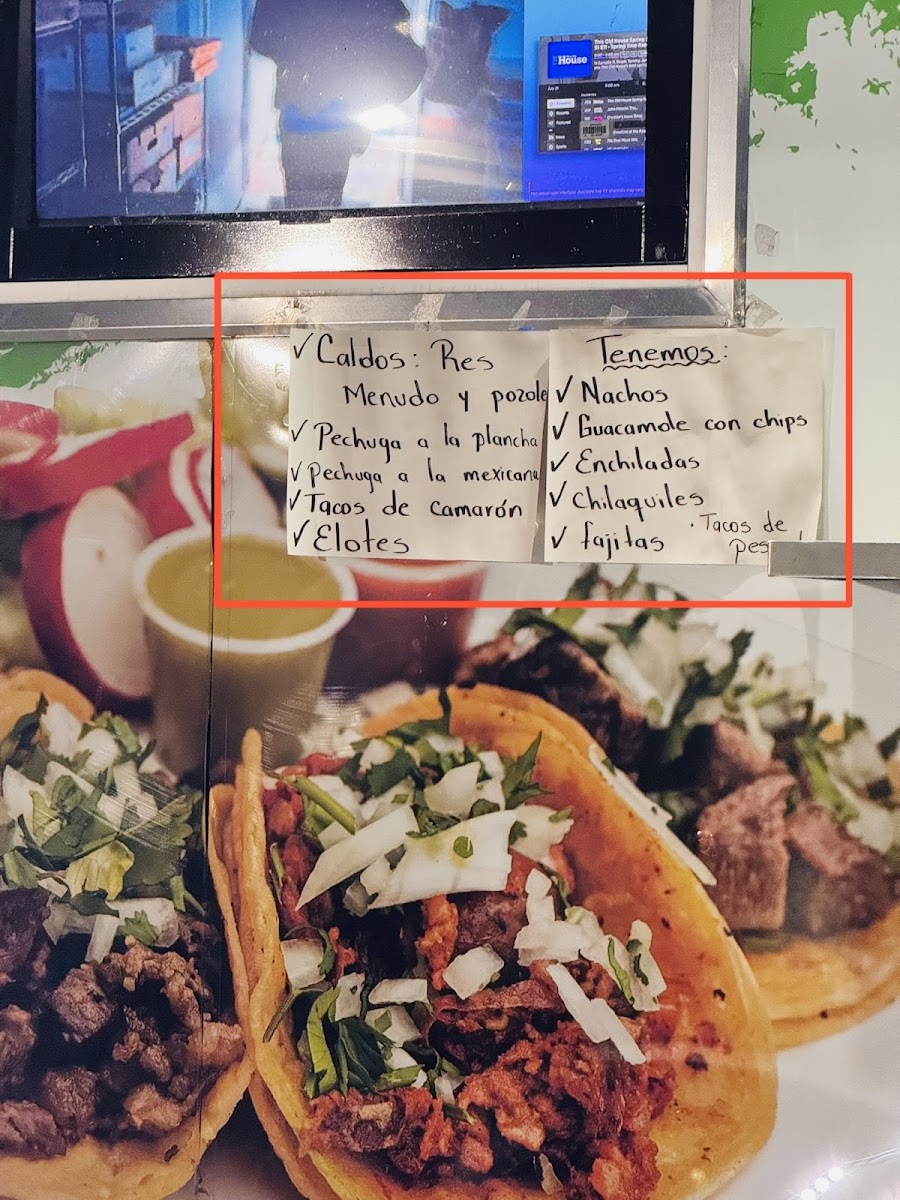 House
This Old House Spring
✓ Caldos: Res
Menudo y pozole
✓ Pechuga a la plancha
✓ Pechuga a la mexicana
✓ Tacos de camarón
✓ Elotes
Tenemos:
✓ Nachos
✓ Guacamole con chips
✓ Enchiladas
✓ Chilaquiles
✓ fajitas
· Tacos de